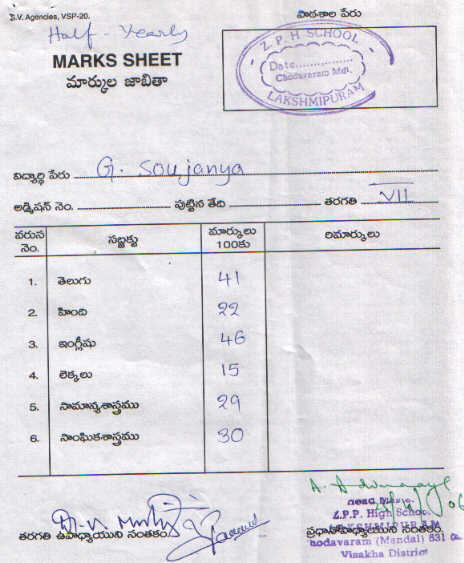 S.V. Agencies, VSP-20.
Half - Yearly
పాఠశాల పేరు
MARKS SHEET
మార్కుల జాబితా
Z. P. H SCHOOL
Date...............
Chodavaram Mdl.
LAKSHMIPURAM
విద్యార్థి పేరు G. Soujanya
అడ్మిషన్ నెం. పుట్టిన తేది తరగతి VII
వరుస నెం. సబ్జక్టు మార్కులు 100కు రిమార్కులు
1. తెలుగు 41
2. హింది 22
3. ఇంగ్లీషు 46
4. లెక్కలు 15
5. సామాన్యశాస్త్రము 29
6. సాంఘికశాస్త్రము 30
Z.P.P. High School
LAKSHMIPURAM
తరగతి ఉపాధ్యాయుని సంతకం. ప్రధానోపాధ్యాయుని సంతకం.
hodavaram (Mandal) 531
Visakha District